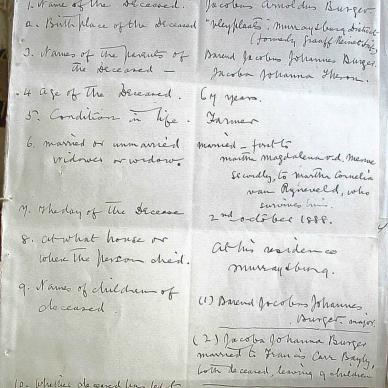 1. Name of the Deceased. Jacobus Arnoldus Burger
2. Birth place of the Deceased "Vleyplaats", Murraysburg District
(formerly Graaff Reinet
3. Names of the parents of Barend Jacobus Johannes Burger.
the Deceased — Jacoba Johanna Theron.
4 Age of the Deceased. 64 years.
5. Condition in life. Farmer
6. married or unmarried married – first to
widower or widow martha Magdalena v.d. Merwe
secondly, to martha Cornelia
van Ryneveld, who
survives him.
7. The day of the Decease 2nd October 1888.
8. at what house or At his residence
where the person died. Murraysburg.
9. Names of children of
deceased. (1) Barend Jacobus Johannes
Burger. major
(2) Jacoba Johanna Burger
married to Francis Carr Bayly,
both deceased, leaving 9 children
10. Whether deceased has left